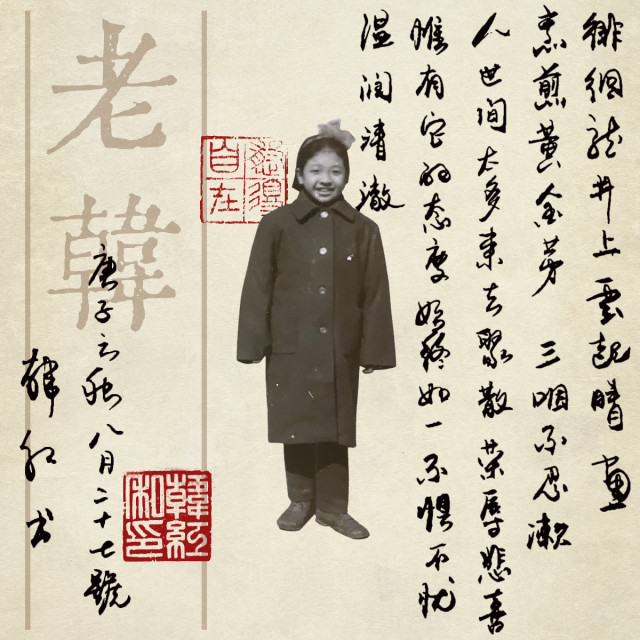 徘徊龍井上雲起晴畫
烹煎黃金芽 三咽不忍漱
人世间太多来去聚散荣辱悲喜
惟有它的态度始终如一不惧不忧
温润清澈
自在
老韓
庚子之秋八月二十七號
韓紅私印
韩红书